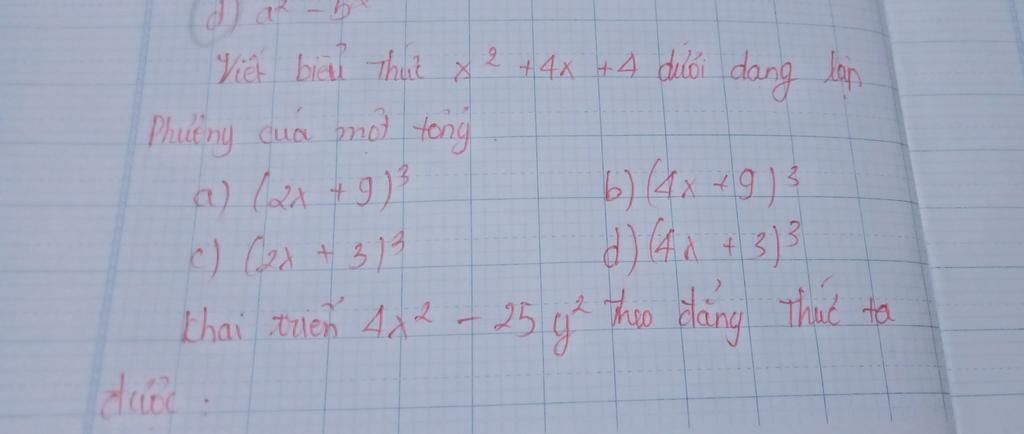 d) a² - b²
Viết biểu thức x² + 4x + 4 dưới dạng lập
Phương của một tổng
a) (2x + 9)³ b) (4x + 9)³
c) (2x + 3)³ d) (4x + 3)³
khai triển 4x² - 25y² theo đẳng thức ta
được :